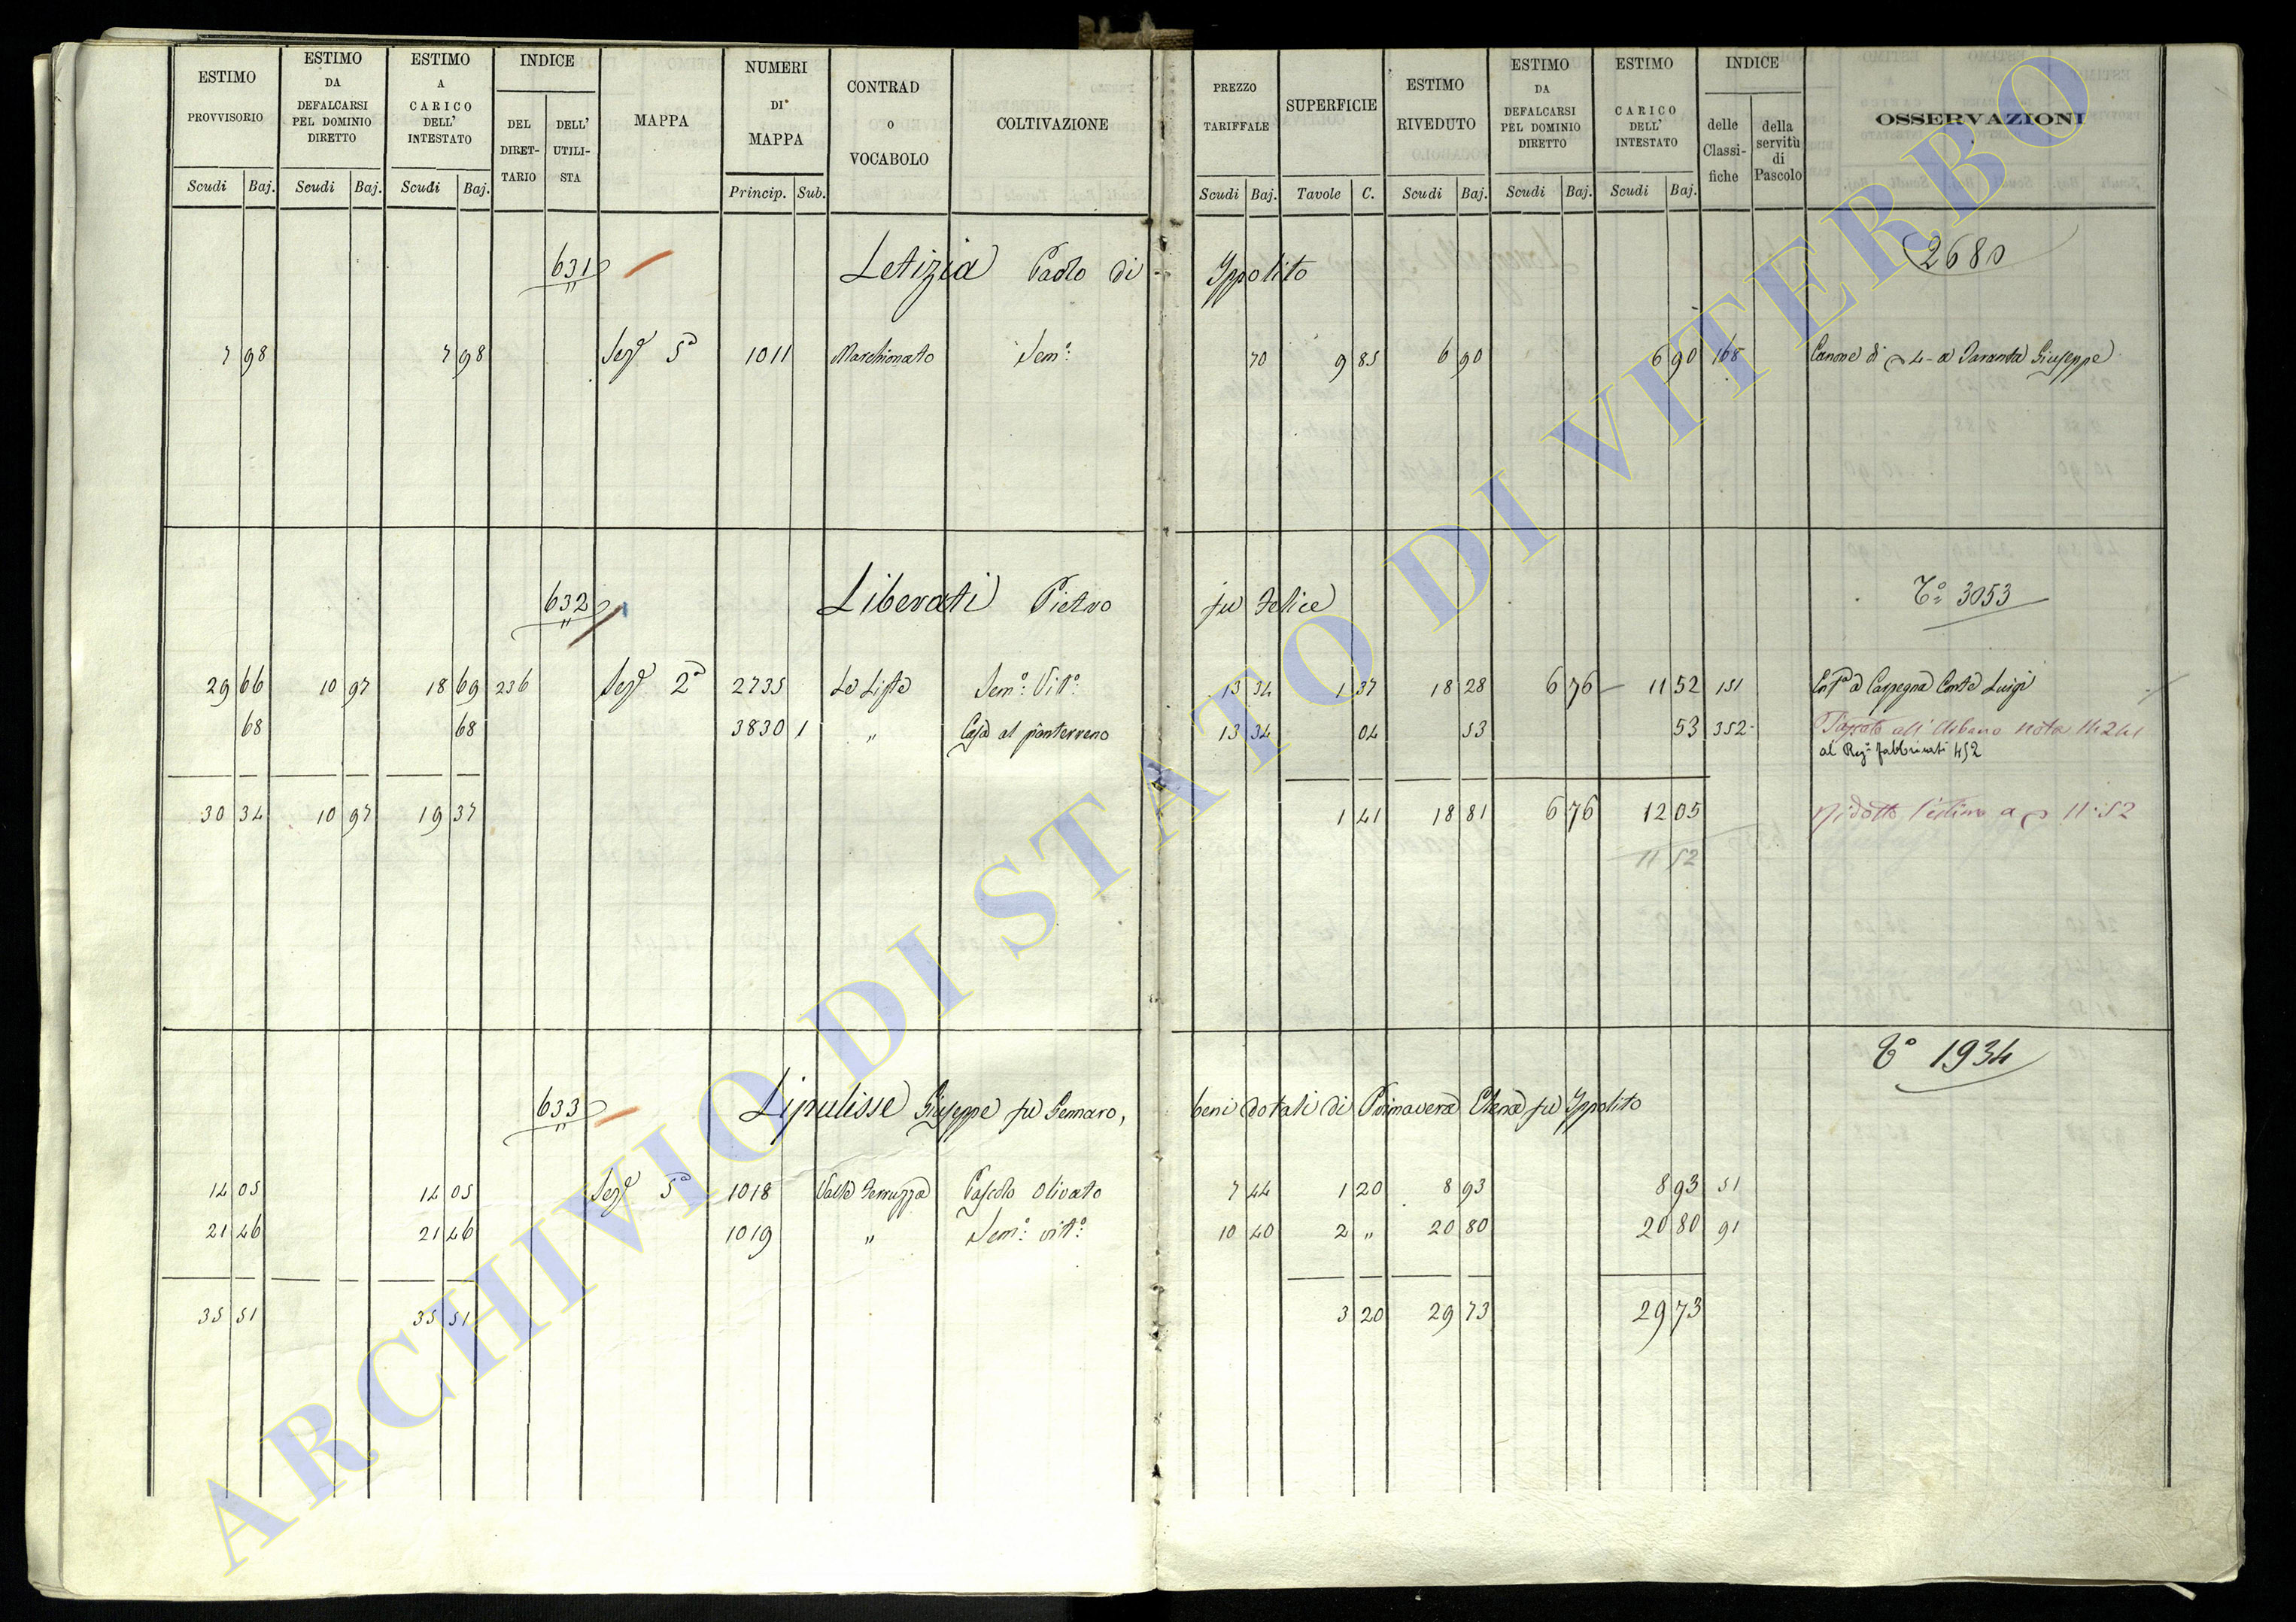 ESTIMO PROVVISORIO Scudi Baj.
ESTIMO DA DEFALCARSI PEL DOMINIO DIRETTO Scudi Baj.
ESTIMO A CARICO DELL' INTESTATO Scudi Baj.
INDICE DEL DIRET- TARIO DELL' UTILI- STA
MAPPA
NUMERI DI MAPPA Princip. Sub.
CONTRAD O VOCABOLO
COLTIVAZIONE
PREZZO TARIFFALE Scudi Baj.
SUPERFICIE Tavole C.
ESTIMO RIVEDUTO Scudi Baj.
ESTIMO DA DEFALCARSI PEL DOMINIO DIRETTO Scudi Baj.
ESTIMO CARICO DELL' INTESTATO Scudi Baj.
INDICE delle Classi- fiche della servitù di Pascolo
OSSERVAZIONI
631 Letizia Paolo di Ippolito 2680
7 98 7 98 Sezᵉ 5ᵃ 1011 Marchionato Semᵒ: 70 9 85 6 90 6 90 168 Canone di 4 a Taranta Giuseppe
632 Liberati Pietro fu Felice Tᵒ 3053
29 66 10 97 18 69 236 Sezᵉ 2ᵃ 2735 La Lista Semᵒ: Vitᵒ: 13 34 1 37 18 28 6 76 11 52 151 Enfᵃ a Carpegna Conte Luigi
68 68 3830 1 " Casa al pianterreno 13 34 04 53 53 352 Passato all' Urbano nota
al Regᵒ fabbricati 452
30 34 10 97 19 37 1 41 18 81 6 76 12 05 Ridotto l'estimo a 11:52
11 52
633 Lipulisse Giuseppe fu Gennaro, beni dotali di Primavera Elena fu Ippolito Tᵒ 1934
14 05 14 05 Sezᵉ 5ᵃ 1018 Pascolo olivato 7 44 1 20 8 93 8 93 51
21 46 21 46 1019 " Semᵒ: vitᵒ: 10 40 2 " 20 80 20 80 91
35 51 35 51 3 20 29 73 29 73
ARCHIVIO DI STATO DI VITERBO